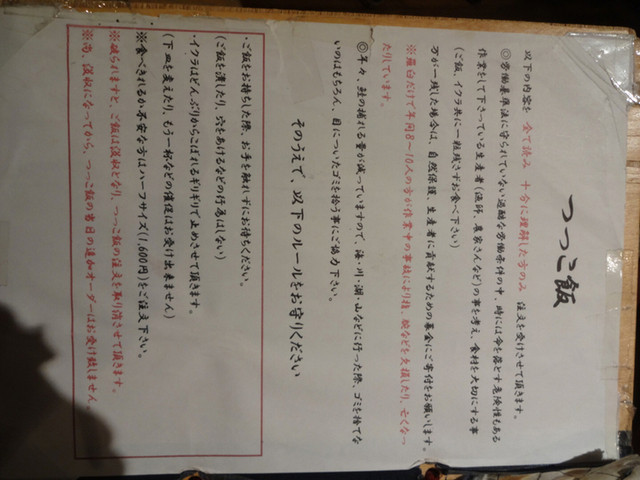 つっこ飯
以下の内容を 全て読み 十分に理解した方のみ 注文を受けさせて頂きます。
◎労働基準法に守られていない過酷な労働条件の中、時には命を落とす危険性もある
作業をして下さっている生産者(漁師、農家さんなど)の事を考え、食材を大切にする事
(ご飯、イクラ共に一粒残さずお食べ下さい)
万が一残した場合は、自然保護、生産者に貢献するための募金にご寄付をお願いします。
※羅臼だけで年間8～10人の方が作業中の事故により指、腕などを欠損したり、亡くなっ
たりしています。
◎年々、鮭の捕れる量が減っていますので、海・川・湖・山などに行った際、ゴミを捨てな
いのはもちろん、目についたゴミを拾う事にご協力下さい。
そのうえで、以下のルールをお守りください
・ご飯をお持ちした際、お手を触れずにお待ちください。
(ご飯を潰したり、穴をあけるなどの行為はしない)
・イクラはどんぶりからこぼれるギリギリで止めさせて頂きます。
(下皿を変えたり、もう一杯などの催促はお受け出来ません)
※食べきれるか不安な方はハーフサイズ(1,000円)をご注文下さい。
※破られますと、ご飯は没収となり、つっこ飯の注文を取り消させて頂きます。
※尚、没収になってから、つっこ飯の当日の追加オーダーはお受け致しません。